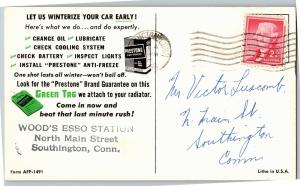 LET US WINTERIZE YOUR CAR EARLY!
Here's what we do...and do expertly.
✓ CHANGE OIL ✓ LUBRICATE
✓ CHECK COOLING SYSTEM
✓ CHECK BATTERY ✓ INSPECT LIGHTS
✓ INSTALL "PRESTONE" ANTI-FREEZE
One shot lasts all winter—won't boil off.
Look for the "Prestone" Brand Guarantee on this
GREEN TAG we attach to your radiator.
Come in now and
beat that last minute rush!
WOOD'S ESSO STATION
North Main Street
Southington, Conn.
Form AFP-1491
PRESTONE
Mr Victor Luscomb
N. Main St.
Southington
Conn
Litho in U.S.A.